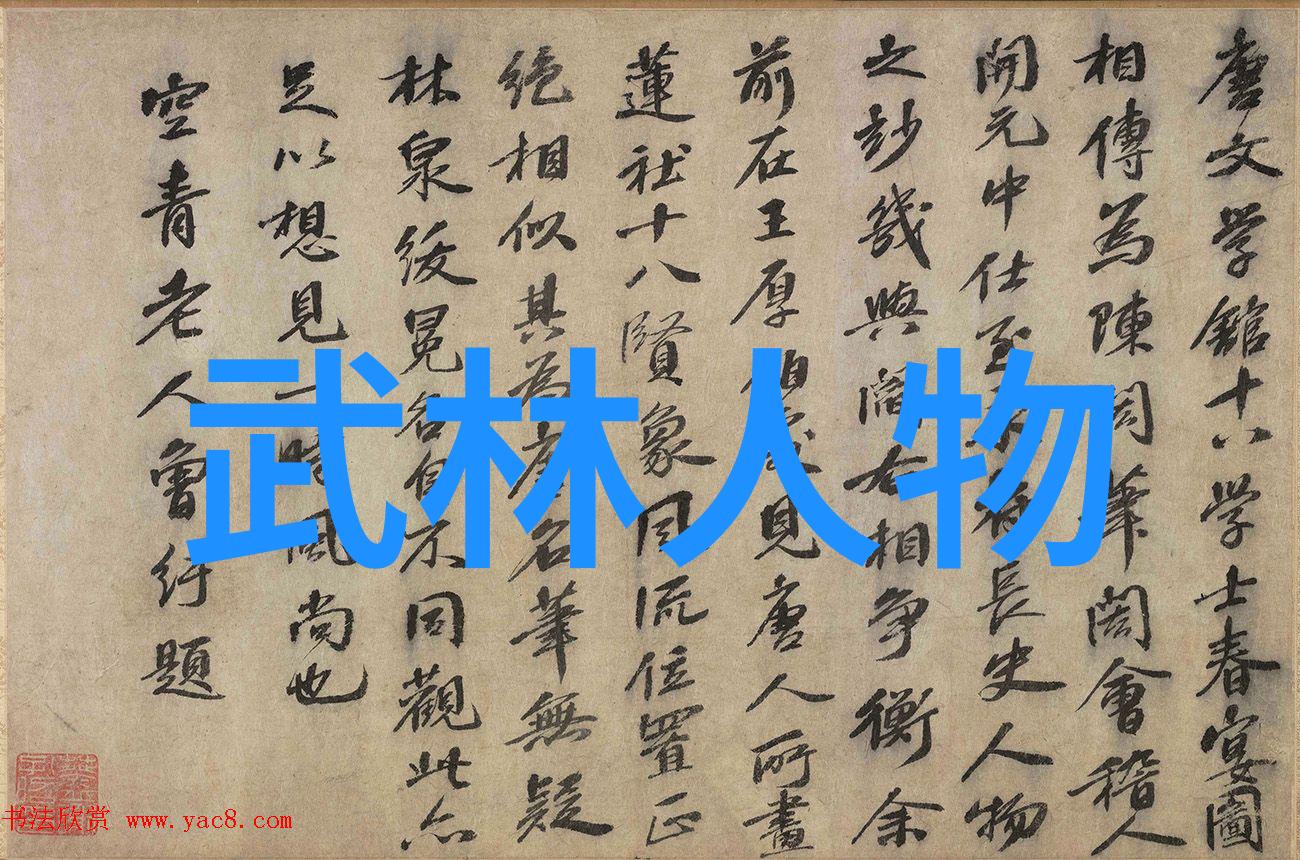 唐文学舘十八学士春宴圖
相傳為陳閎筆閎會稽人
開元中仕至
長史人物
之妙幾與閻右相爭衡余
前在王厚伯
見唐人所畫
蓮社十八賢象同流位置正
絶相似其為唐名筆無疑
林泉綬冕名自不同觀此亦
足以想見一時風尚也
空青老人曾紆題
武林人物
书法欣赏 www.yac8.com